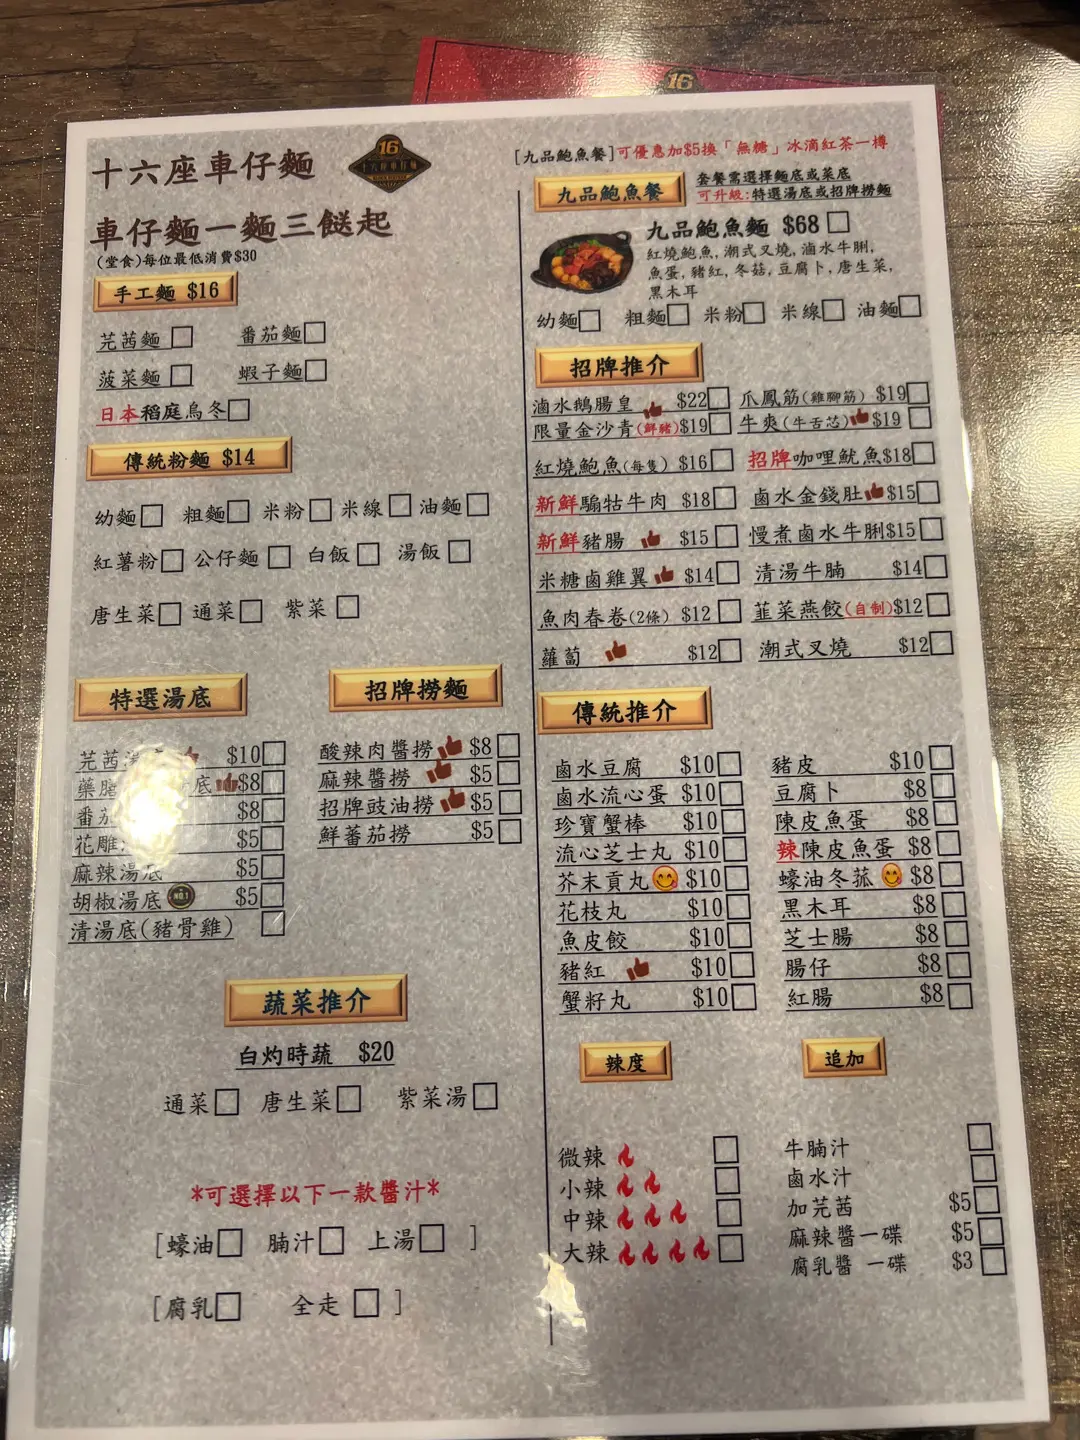 16
十六座車仔麵
16
十六座車仔麵
車仔麵一麵三餸起
(堂食)每位最低消費$30
手工麵 $16
芫茜麵 番茄麵
菠菜麵 蝦子麵
日本稻庭烏冬
傳統粉麵 $14
幼麵 粗麵 米粉 米線 油麵
紅薯粉 公仔麵 白飯 湯飯
唐生菜 通菜 紫菜
特選湯底
芫茜 $10
底 $8
番茄 $8
花雕 $5
麻辣湯底 $5
胡椒湯底 NO.1 $5
清湯底(豬骨雞)
招牌撈麵
酸辣肉醬撈 $8
麻辣醬撈 $5
招牌豉油撈 $5
鮮蕃茄撈 $5
蔬菜推介
白灼時蔬 $20
通菜 唐生菜 紫菜湯
*可選擇以下一款醬汁*
[蠔油 腩汁 上湯 ]
[腐乳 全走 ]
[九品鮑魚餐]可優惠加$5換「無糖」冰滴紅茶一樽
九品鮑魚餐
套餐需選擇麵底或菜底
可升級:特選湯底或招牌撈麵
九品鮑魚麵 $68
紅燒鮑魚,潮式叉燒,滷水牛脷,
魚蛋,豬紅,冬菇,豆腐卜,唐生菜,
黑木耳
幼麵 粗麵 米粉 米線 油麵
招牌推介
滷水鵝腸皇 $22 爪鳳筋(雞腳筋) $19
限量金沙青(鮮豬)$19 牛爽(牛舌芯) $19
紅燒鮑魚(每隻) $16 招牌咖哩魷魚$18
新鮮騸牯牛肉 $18 鹵水金錢肚 $15
新鮮豬腸 $15 慢煮鹵水牛脷$15
米糖鹵雞翼 $14 清湯牛腩 $14
魚肉春卷(2條) $12 韮菜燕餃(自制)$12
蘿蔔 $12 潮式叉燒 $12
傳統推介
鹵水豆腐 $10 豬皮 $10
鹵水流心蛋 $10 豆腐卜 $8
珍寶蟹棒 $10 陳皮魚蛋 $8
流心芝士丸 $10 辣陳皮魚蛋 $8
芥末貢丸 $10 蠔油冬菰 $8
花枝丸 $10 黑木耳 $8
魚皮餃 $10 芝士腸 $8
豬紅 $10 腸仔 $8
蟹籽丸 $10 紅腸 $8
辣度
微辣
小辣
中辣
大辣
追加
牛腩汁
鹵水汁
加芫茜 $5
麻辣醬一碟 $5
腐乳醬 一碟 $3